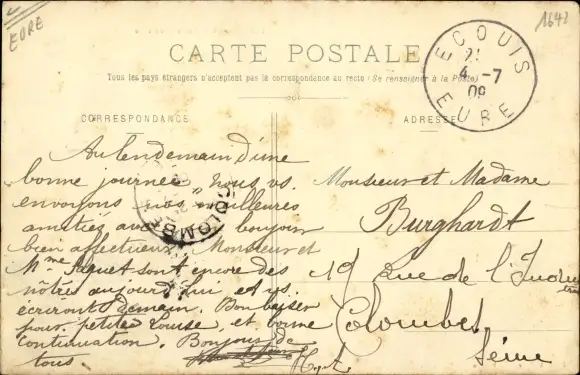 EURE
1642
CARTE POSTALE
Tous les pays étrangers n'acceptent pas la correspondance au recto (Se renseigner à la Poste)
ECOUIS
21
4 -7
09
EURE
CORRESPONDANCE
ADRESSE
Au lendemain d'une
bonne journée nous vs.
envoyons nos meilleures
amitiés avec bonjour
bien affectueux Monsieur et
Mme Paquet sont encore des
nôtres aujourd'hui et vs.
écriront demain. Bon baiser
pour petite Louise, et bonne
continuation. Bonjour de
tous.
COLOMB
Monsieur et Madame
Burghardt
19 Rue de l'Indus
trie
Colombes
Seine